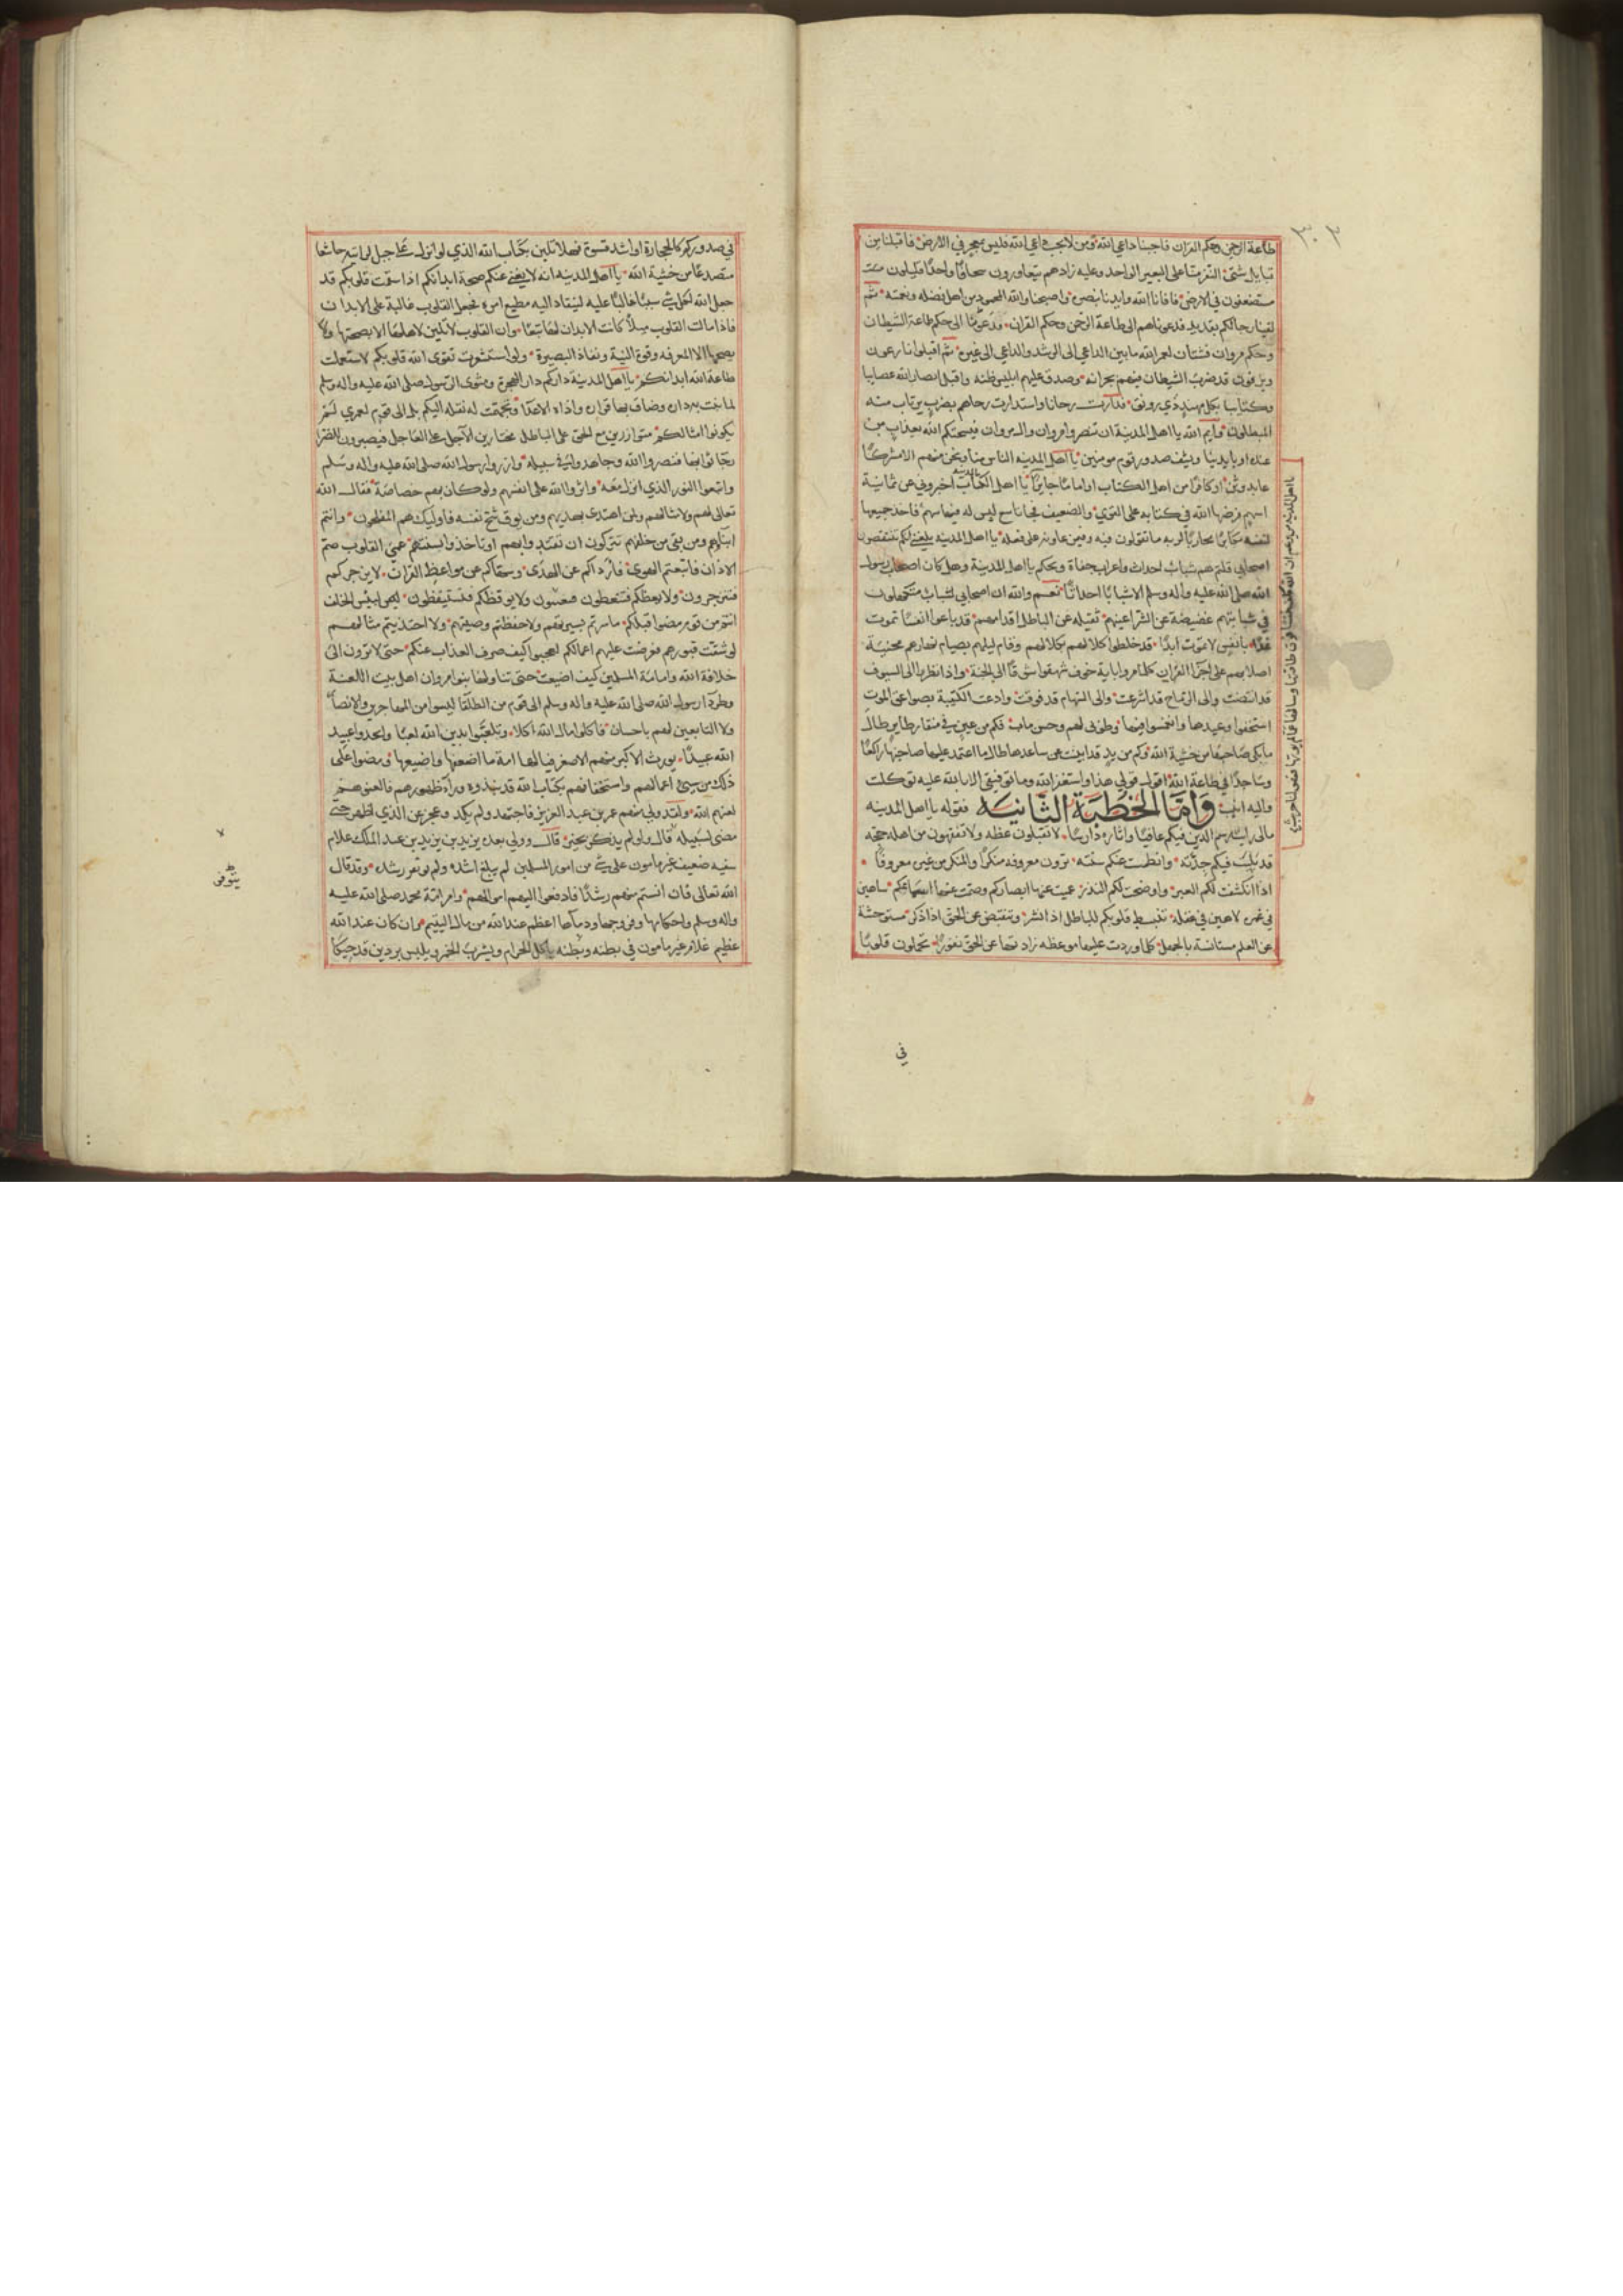 ٣٠٣
طاعة الرحمن وحكم القران فاجبنا داعي الله ومن لا يجب داعي الله فليس بمعجز في الارض فاقبلنا من
قبايل شتى النفر منا على البعير الواحد وعليه زادهم يتعاورون لحافا واحدا قليلون
مستضعفون في الارض فاوانا الله وايدنا بنصره واصبحنا والله المحمود من اهل فضله ونعمته ثم
لقينا رجالكم بقديد فدعوناهم الى طاعة الرحمن وحكم القران ودعونا الى حكم طاعة الشيطان
وحكم مروان فشتان لعمر الله ما بين الداعي الى الرشد والداعي الى غيره ثم اقبلوا نارعون
ويزفون قد ضرب الشيطان فيهم بجرانه وصدق عليهم ابليس ظنه واقبل انصار الله عصايبا
وكتايبا بكل مهند ذي رونق فدارت رحانا واستدارت رحاهم بضرب يرتاب منه
المبطلون وايم الله يا اهل المدينة ان تنصروا مروان وال مروان فيسحتكم الله بعذاب من
عنده او بايدينا ويشف صدور قوم مومنين يا اهل المدينه الناس منا ونحن منهم الا مشركا
عابد وثن او كافرا من اهل الكتاب او اماما جايرا يا اهل المدينة اخبروني عن ثمانية
اسهم فرضها الله في كتابه على القوي والضعيف فجا تاسع ليس له فيها سهم فاخذ جميعها
لنفسه مكابرا محاربا لربه ما تقولون فيه وفيمن عاونه على فعله يا اهل المدينه بلغني انكم تنتقصون
اصحابي قلتم هم شباب احداث واعراب جفاة ويحكم يا اهل المدينة وهل كان اصحاب رسول
الله صلى الله عليه واله وسلم الا شبابا احداثا نعم والله ان اصحابي لشباب متكهلون
في شبابهم غضيضة عن الشر اعينهم ثقيله عن الباطل اقدامهم قد باعوا انفسا تموت
غدا بانفس لا تموت ابدا قد خلطوا كلالهم بكلالهم وقيام ليلهم بصيام نهارهم محنية
اصلابهم على اجزا القران كلما مروا باية خوف شهقوا شوقا الى الجنة واذا نظروا الى السيوف
قد انتضت والى الرماح قد اشرعت والى السهام قد فوقت وارعدت الكتيبة بصواعق الموت
استخفوا وعيدها وانغمسوا فيها وطوبى لهم وحسن ماب فكم من عين في منقار طاير طال
ما بكى صاحبها من خشية الله وكم من يد قد ابينت عن ساعدها طال ما اعتمد عليها صاحبها راكعا
وساجدا في طاعة الله اقول قولي هذا واستغفر الله وما توفيقي الا بالله عليه توكلت
واليه انيب وَامَّا الخُطبَة الثَّانِيَة فقوله يا اهل المدينه
مالي رايت رسم الدين فيكم عافيا واثاره دارسا لا تقبلون عظه ولا تفقهون من اهله حجة
قد بليت فيكم جدته وانطمست عنكم سنته ترون معروفه منكرا والمنكر من غيره معروفا
اذا انكشفت لكم العبر واوضحت لكم النذر عميت عنها ابصاركم وصمت عنها اسماعكم ساهين
في غمره لاهين في غفله تنبسط قلوبكم للباطل اذا انشر وتنقبض عن الحق اذا ذكر مستوحشة
عن العلم مستانسة بالجهل كلما وردت عليها موعظه زادتها عن الحق نفورا تحملون قلوبا
يا اهل المدينة من زعم ان الله كلف نفسا فوق طاقتها وسالها عما لم يوتها فهو لنا حرب
في
في صدوركم كالحجارة او اشد قسوة فهلا تلين بكتاب الله الذي لو انزل على جبل لرايته خاشعا
متصدعا من خشية الله يا اهل المدينه انه لا يغني عنكم صحة ابدانكم اذا سقمت قلوبكم قد
جعل الله لكل شي سببا غالبا عليه لينقاد اليه مطيع امره فجعل القلوب غالبة على الابدان
فاذا مالت القلوب ميلا كانت الابدان لها تبعا وان القلوب لا تلين لاهلها الا بصحتها ولا
يصححها الا المعرفه وقوة النية ونفاذ البصيرة ولو استشعرت تقوى الله قلوبكم لاستعملت
طاعة الله ابدانكم يا اهل المدينة داركم دار الهجرة ومثوى الرسول صلى الله عليه واله وسلم
لما نبت به داره وضاق بها قراره واذاه الاعدا وتجهمت له نقله اليكم بل الى قوم لعمري لم
يكونوا امثالكم متوازرين مع الحق على الباطل مختارين الاجل على العاجل فيصبرون للضرا
رجا ثوابها فنصروا الله وجاهدوا في سبيله وازروا رسول الله صلى الله عليه واله وسلم
واتبعوا النور الذي انزل معه واثروا الله على انفسهم ولو كان بهم خصاصة فقال الله
تعالى لهم ولامثالهم ولمن اهتدى بهديهم ومن يوق شح نفسه فاوليك هم المفلحون وانتم
ابناوهم ومن بقي من خلفهم تتركون ان تقتدوا بهم او تاخذوا بسنتهم عمي القلوب صم
الاذان فاتبعتم الهوى فارداكم عن الهدى وسهاكم عن مواعظ القران لا يزجركم
فتزجرون ولا يعظكم فتتعظون ولا يوقظكم فتستيقظون لبيس الخلف
انتم من قوم مضوا قبلكم ما سرتم بسيرتهم ولا حفظتم وصيتهم ولا احتذيتم مثالهم
لو شقت قبورهم فعرضت عليهم اعمالكم لعجبوا كيف صرف العذاب عنكم حتى لا ترون الى
خلافة الله وامامة المسلمين كيف اضيعت حتى تناولها بنو مروان اهل بيت اللعنة
وطردا رسول الله صلى الله عليه واله وسلم الى قوم من الطلقا ليسوا من المهاجرين والانصار
ولا التابعين لهم باحسان فاكلوا مال الله اكلا وتلعبوا بدين الله لعبا واتخذوا عبيد
الله عبيدا يورث الاكبر منهم الاصغر فيا لها امة ما اضعفها واضيعها ومضوا على
ذلك من سيئ اعمالهم واستخفافهم بكتاب الله قد نبذوه ورا ظهورهم فالعنوهم
لعنهم الله ولقد ولي منهم عمر بن عبد العزيز فاجتهد ولم يكد وعجز عن الذي اظهر حتى
مضى لسبيله قال ولم يذكره بخير قال وولي بعده يزيد بن يزيد بن عبد الملك غلام
سفيه ضعيف غير مامون على شي من امور المسلمين لم يبلغ اشده ولم يونس رشده وقد قال
الله تعالى فان انستم منهم رشدا فادفعوا اليهم اموالهم وامر امة محمد صلى الله عليه
واله وسلم واحكامها وفروجها ودماها اعظم عند الله من مال اليتيم وان كان عند الله
عظيم غلام غير مامون في بطنه وفرجه ياكل الحرام ويشرب الخمر ويلبس بردين قد حيكا